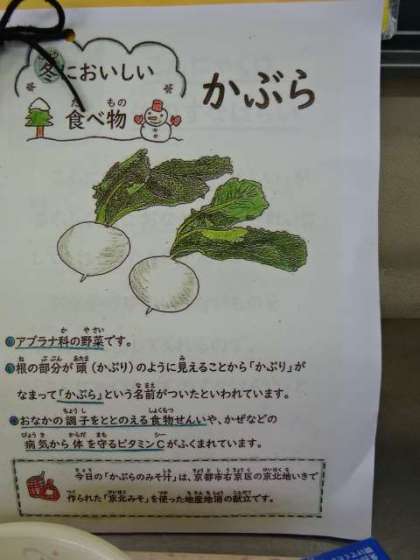 冬においしい
食べ物
かぶら
アブラナ科の野菜です。
根の部分が頭（かぶり）のように見えることから「かぶり」が
なまって「かぶら」という名前がついたといわれています。
おなかの調子をととのえる食物せんいや、かぜなどの
病気から体を守るビタミンCがふくまれています。
今日の「かぶらのみそ汁」は、京都市右京区の京北地いきで
作られた「京北みそ」を使った地産地消の献立です。